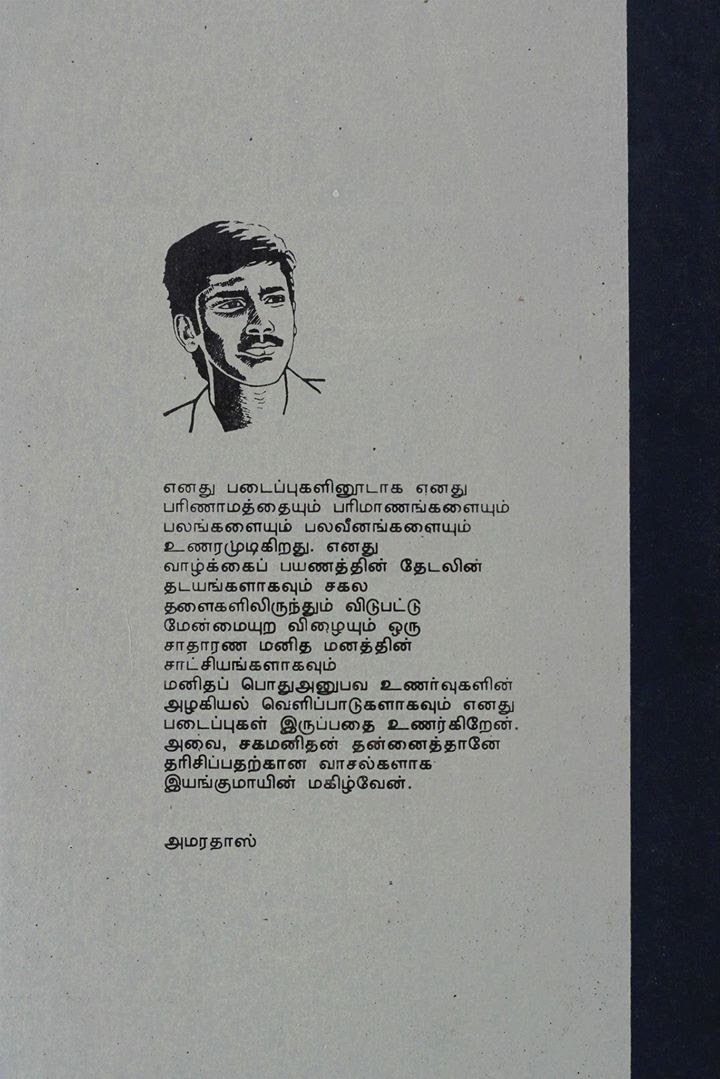 எனது படைப்புகளினூடாக எனது
பரிணாமத்தையும் பரிமாணங்களையும்
பலங்களையும் பலவீனங்களையும்
உணரமுடிகிறது. எனது
வாழ்க்கைப் பயணத்தின் தேடலின்
தடயங்களாகவும் சகல
தளைகளிலிருந்தும் விடுபட்டு
மேன்மையுற விழையும் ஒரு
சாதாரண மனித மனத்தின்
சாட்சியங்களாகவும்
மனிதப் பொதுஅனுபவ உணர்வுகளின்
அழகியல் வெளிப்பாடுகளாகவும் எனது
படைப்புகள் இருப்பதை உணர்கிறேன்.
அவை, சகமனிதன் தன்னைத்தானே
தரிசிப்பதற்கான வாசல்களாக
இயங்குமாயின் மகிழ்வேன்.
அமரதாஸ்